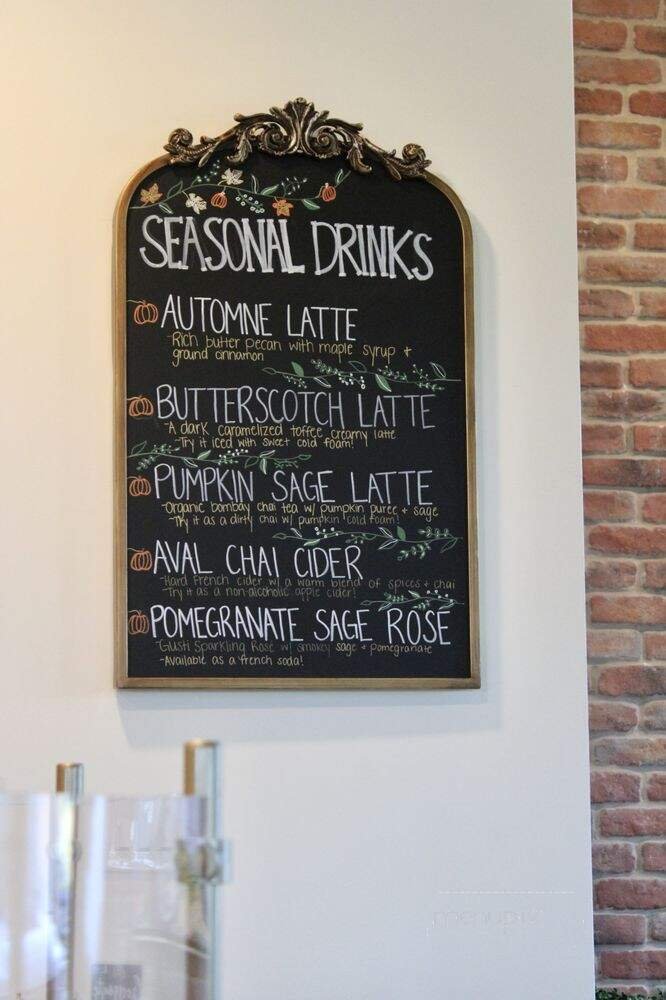 SEASONAL DRINKS
AUTOMNE LATTE
Rich butter pecan with maple syrup +
ground cinnamon
BUTTERSCOTCH LATTE
-A dark caramelized toffee creamy latte
-Try it iced with sweet cold foam!
PUMPKIN SAGE LATTE
-Organic bombay chai tea w/ pumpkin puree + sage
-Try it as a dirty chai w/ pumpkin cold foam!
AVAL CHAI CIDER
-Hard French cider w/ a warm blend of spices + chai
-Try it as a non-alcoholic apple cider!
POMEGRANATE SAGE ROSE
-Giusti Sparkling Rose w/ smokey sage + pomegranate
-Available as a french soda!